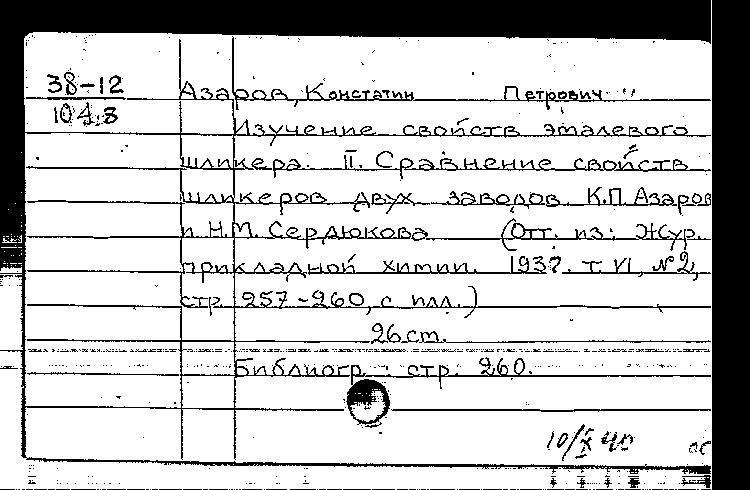 38-12
104.8
Азаров, Констатин Петрович
Изучение свойств эмалевого
шликера. II. Сравнение свойств
шликеров двух заводов. К.П. Азаров
и Н.М. Сердюкова. (Отт. из: Жур.
прикладной химии. 1937. т. VI, №2,
стр. 257-260, с илл.)
26 cm.
Библиогр: стр. 260.
10/X 40